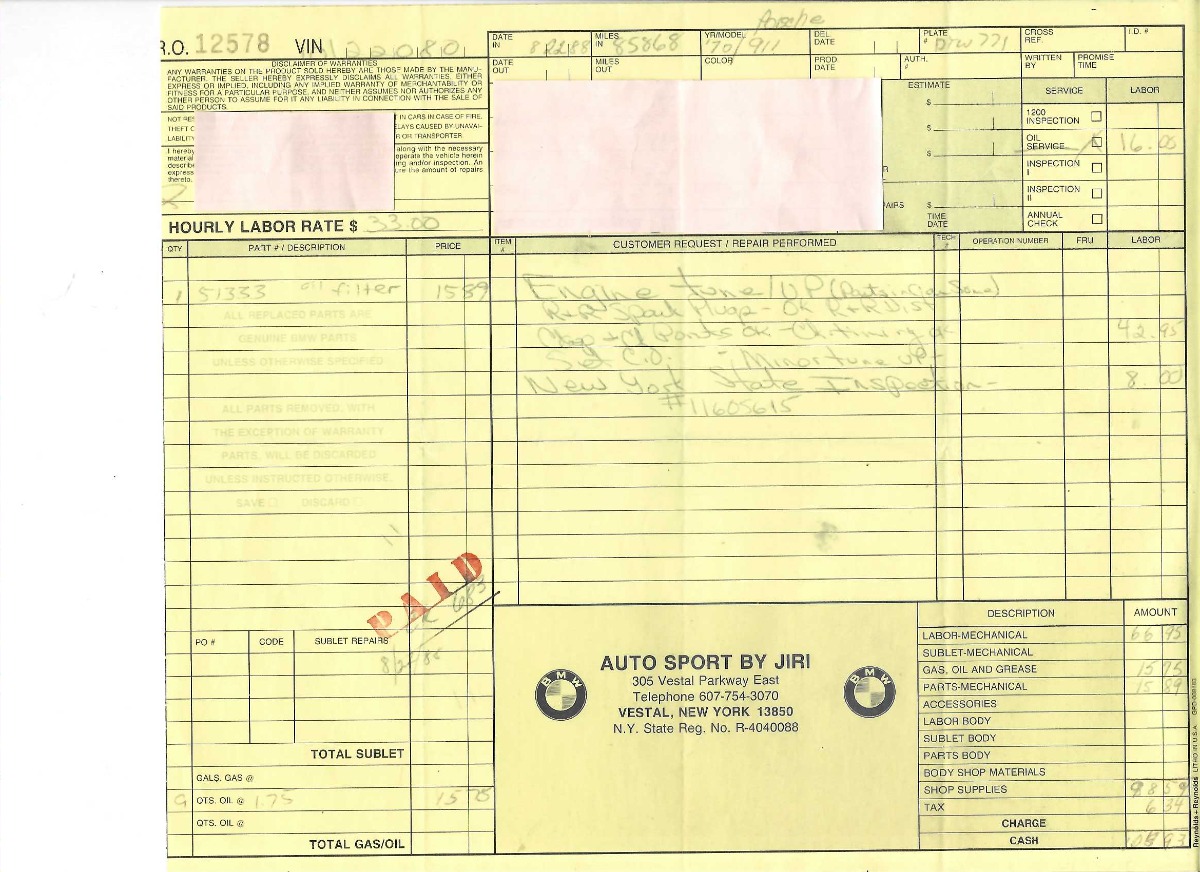 Porsche
R.O. 12578 VIN
DATE IN MILES IN 85868 YR/MODEL '70/911 DEL. DATE PLATE # DTW 771 CROSS REF. I.D. #
DATE OUT MILES OUT COLOR PROD. DATE AUTH. # WRITTEN BY PROMISE TIME
DISCLAIMER OF WARRANTIES
ANY WARRANTIES ON THE PRODUCT SOLD HEREBY ARE THOSE MADE BY THE MANU-
FACTURER. THE SELLER HEREBY EXPRESSLY DISCLAIMS ALL WARRANTIES, EITHER
EXPRESS OR IMPLIED, INCLUDING ANY IMPLIED WARRANTY OF MERCHANTABILITY OR
FITNESS FOR A PARTICULAR PURPOSE, AND NEITHER ASSUMES NOR AUTHORIZES ANY
OTHER PERSON TO ASSUME FOR IT ANY LIABILITY IN CONNECTION WITH THE SALE OF
SAID PRODUCTS.
NOT RES T IN CARS IN CASE OF FIRE,
THEFT O ELAYS CAUSED BY UNAVAI-
LABILITY R OR TRANSPORTER.
I hereby along with the necessary
material operate the vehicle herein
describe ing and/or inspection. An
express ure the amount of repairs
thereto.
ESTIMATE
$
$
$
AIRS $
TIME
DATE
SERVICE LABOR
1200 INSPECTION
OIL SERVICE 16.00
INSPECTION I
INSPECTION II
ANNUAL CHECK
HOURLY LABOR RATE $ 33.00
QTY PART # / DESCRIPTION PRICE ITEM # CUSTOMER REQUEST / REPAIR PERFORMED TECH # OPERATION NUMBER FRU LABOR
1 51333 oil filter 15 89
Engine tune/UP (Parts in Cign Some)
R+R Spark Plugs - OK R+R Dist
Cap + Points OK - Ch. timing ok 42.95
Set C.O. - Minor tune UP -
New York State Inspection - 8.00
#11605615
ALL REPLACED PARTS ARE
GENUINE BMW PARTS
UNLESS OTHERWISE SPECIFIED
ALL PARTS REMOVED, WITH
THE EXCEPTION OF WARRANTY
PARTS, WILL BE DISCARDED
UNLESS INSTRUCTED OTHERWISE.
SAVE DISCARD
PAID
CK 683
PO # CODE SUBLET REPAIRS
TOTAL SUBLET
GALS. GAS @
9 QTS. OIL @ 1.75 15 75
QTS. OIL @
TOTAL GAS/OIL
BMW
AUTO SPORT BY JIRI
305 Vestal Parkway East
Telephone 607-754-3070
VESTAL, NEW YORK 13850
N.Y. State Reg. No. R-4040088
BMW
DESCRIPTION AMOUNT
LABOR-MECHANICAL 66 95
SUBLET-MECHANICAL
GAS, OIL AND GREASE 15 75
PARTS-MECHANICAL 15 89
ACCESSORIES
LABOR BODY
SUBLET BODY
PARTS BODY
BODY SHOP MATERIALS
SHOP SUPPLIES 98 59
TAX 6 34
CHARGE
CASH
Reynolds + Reynolds LITHO IN U.S.A.